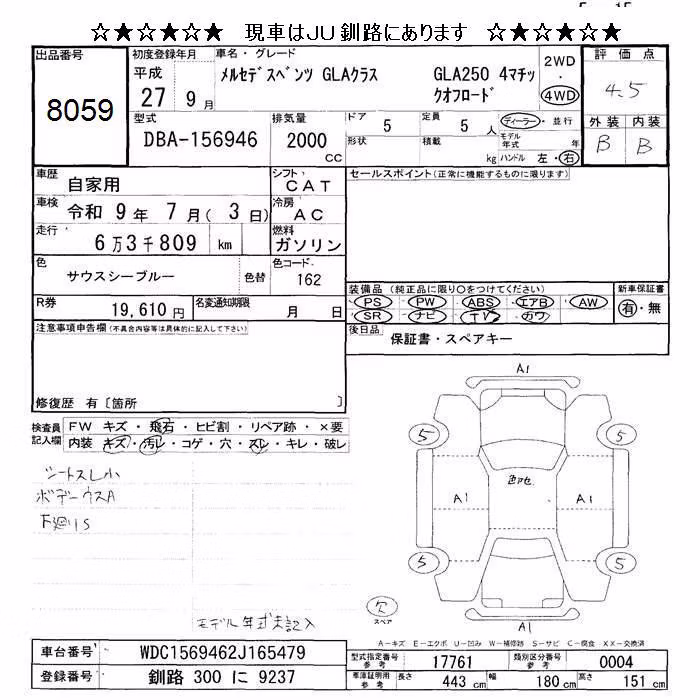 ☆★☆★☆★ 現車はJU釧路にあります ☆★☆★☆★
出品番号 初度登録年月 車名・グレード 2WD 評価点
8059 平成 27 9月 メルセデスベンツ GLAクラス GLA250 4マチッ
クオフロード ・ 4WD 4.5
型式 排気量 ドア 定員 ディーラー・並行 外装 内装
DBA-156946 2000 cc 5 5人 モデル年式 年 B B
形状 積載 kg ハンドル 左・右
車歴 自家用 シフト CAT セールスポイント(正常に機能するものに限ります)
車検 令和 9年 7月( 3日) 冷房 AC
走行 6万3千809 km 燃料 ガソリン
色 サウスシーブルー 色替 色コード 162
装備品 (純正品に限り○をつけてください) 新車保証書
R券 19,610円 名変通知期限 月 日
PS・PW・ABS・エアB・AW 有・無
SR・ナビ・TV・カワ
注意事項申告欄(不具合内容等は具体的に記入して下さい) 後日品 保証書・スペアキー
修復歴 有〔箇所 〕
検査員 FW キズ・飛石・ヒビ割・リペア跡・×要
記入欄 内装 キズ・汚レ・コゲ・穴・スレ・キレ・破レ
シートスレ小
ボデーウスA
下廻りS
モデル年式未記入
A1
5 5
A1 色アセ A1
5 5
欠
スペア
A1
A-キズ E-エクボ U-凹み W-補修跡 S-サビ C-腐食 XX-交換済
車台番号 WDC1569462J165479 型式指定番号 参考 17761 類別区分番号 参考 0004
登録番号 釧路 300 に 9237 車庫証明用 参考 長さ 443 cm 幅 180 cm 高さ 151 cm